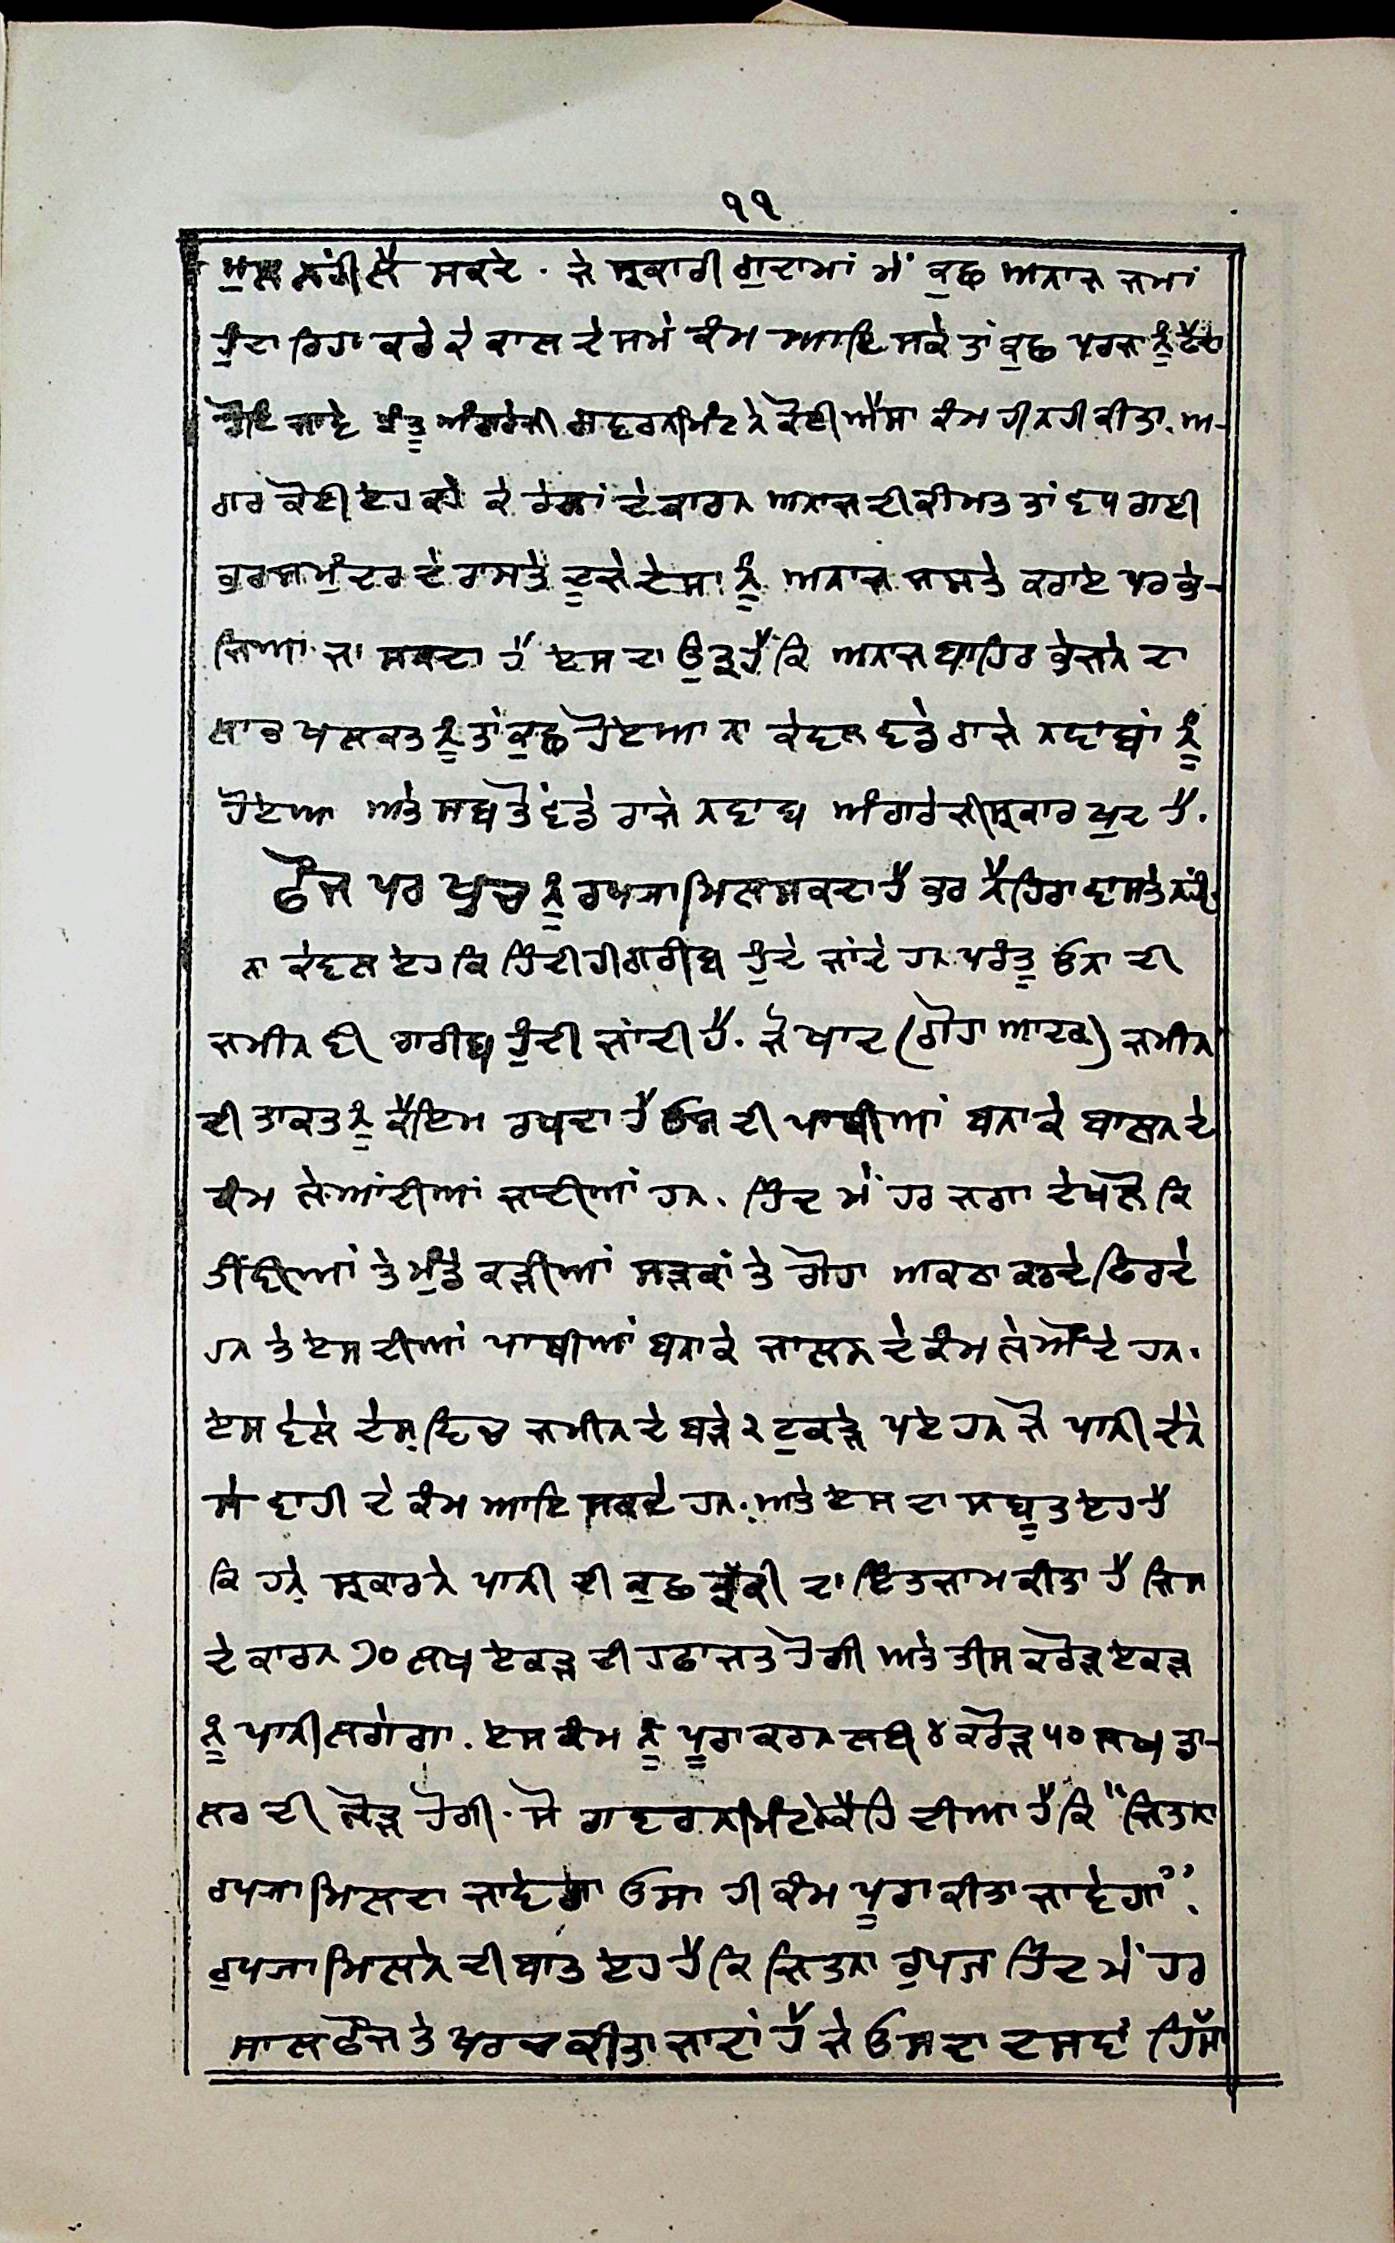 ੧੧
ਮੁਲ ਨਹੀਂ ਲੈ ਸਕਦੇ. ਜੇ ਸ੍ਰਕਾਰੀ ਗੁਦਾਮਾਂ ਮੇਂ ਕੁਛ ਅਨਾਜ ਜਮਾਂ
ਹੁੰਦਾ ਰਿਹਾ ਕਰੇ ਕੇ ਕਾਲ ਦੇ ਸਮੇਂ ਕੰਮ ਆਇ ਸਕੇ ਤਾਂ ਕੁਛ ਪਰਜਾ ਨੂੰ ਫੈਦਾ
ਹੋਇ ਜਾਵੇ ਪ੍ਰੰਤੂ ਅੰਗਰੇਜੀ ਗਵਰਨਮਿੰਟ ਨੇ ਕੋਈ ਐਸਾ ਕੰਮ ਹੀ ਨਹੀ ਕੀਤਾ. ਅ-
ਗਰ ਕੋਈ ਏਹ ਕਹੇ ਕੇ ਰੇਲਾਂ ਦੇ ਕਾਰਨ ਅਨਾਜ ਦੀ ਕੀਮਤ ਤਾਂ ਵਧ ਗਈ
ਕੁਰਸਮੁੰਦਰ ਦੇ ਰਾਸਤੇ ਦੂਜੇ ਦੇਸਾ ਨੂੰ ਅਨਾਜ ਸਸਤੇ ਕਰਾਏ ਪਰ ਭੇ-
ਜਿਆ ਜਾ ਸਕਦਾ ਹੈ ਏਸ ਦਾ ਉਤ੍ਰ ਹੈ ਕਿ ਅਨਾਜ ਬਾਹਿਰ ਭੇਜਨੇ ਦਾ
ਲਾਭ ਖਲਕਤ ਨੂੰ ਤਾਂ ਕੁਛ ਹੋਇਆ ਨਾ ਕੇਵਲ ਵਡੇ ਰਾਜੇ ਨਵਾਬਾਂ ਨੂੰ
ਹੋਇਆ ਅਤੇ ਸਬ ਤੋਂ ਵਡੇ ਰਾਜੇ ਨਵਾਬ ਅੰਗਰੇਜੀ ਸ੍ਰਕਾਰ ਖੁਦ ਹੈ.
ਫੌਜ ਪਰ ਖ੍ਰਚ ਨੂੰ ਰਪਯਾ ਮਿਲ ਸਕਦਾ ਹੈ ਕੁਰ ਨੈਹਿਰਾ ਵਾਸਤੇ ਨਹੀਂ.
ਨਾ ਕੇਵਲ ਏਹ ਕਿ ਹਿੰਦੀ ਹੀ ਗਰੀਬ ਹੁੰਦੇ ਜਾਂਦੇ ਹਨ ਪਰੰਤੂ ਓਨਾ ਦੀ
ਜਮੀਨ ਵੀ ਗਰੀਬ ਹੁੰਦੀ ਜਾਂਦੀ ਹੈ. ਜੋ ਖਾਦ (ਗੋਹਾ ਆਦਕ) ਜਮੀਨ
ਦੀ ਤਾਕਤ ਨੂੰ ਕੈਇਮ ਰਖਦਾ ਹੈ ਓਸ ਦੀ ਪਾਥੀਆਂ ਬਨਾ ਕੇ ਬਾਲਨ ਦੇ
ਕੰਮ ਲੇਆਂਦੀਆਂ ਜਾਦੀਆਂ ਹਨ. ਹਿੰਦ ਮੇਂ ਹਰ ਜਗਾ ਦੇਖ ਲੋ ਕਿ
ਤੀਂਵੀਆਂ ਤੇ ਮੁੰਡੇ ਕੜੀਆਂ ਸੜਕਾਂ ਤੇ ਗੋਹਾ ਅਕਠਾ ਕਰਦੇ ਫਿਰਦੇ
ਹਨ ਤੇ ਏਸ ਦੀਆਂ ਪਾਥੀਆਂ ਬਨਾ ਕੇ ਜਾਲਨ ਦੇ ਕੰਮ ਲੇਔਂਦੇ ਹਨ.
ਏਸ ਵੇਲੇ ਦੇਸ ਵਿਚ ਜਮੀਨ ਦੇ ਬੜੇ ੨ ਟੁਕੜੇ ਪਏ ਹਨ ਜੋ ਪਾਨੀ ਦੇਨੇ
ਸੇ ਵਾਹੀ ਦੇ ਕੰਮ ਆਇ ਸਕਦੇ ਹਨ. ਅਤੇ ਏਸ ਦਾ ਸਬੂਤ ਏਹ ਹੈ
ਕਿ ਹਨੇ ਸ੍ਰਕਾਰ ਨੇ ਪਾਨੀ ਦੀ ਕੁਛ ਦਾ ਇੰਤਜਾਮ ਕੀਤਾ ਹੈ ਜਿਸ
ਦੇ ਕਾਰਨ ੭੦ ਲਖ ਏਕੜ ਦੀ ਹਫਾਜਤ ਹੋਗੀ ਅਤੇ ਤੀਸ ਕਰੋੜ ਏਕੜ
ਨੂੰ ਪਾਨੀ ਲਗੇਗਾ. ਏਸ ਕੰਮ ਨੂੰ ਪੂਰਾ ਕਰਨ ਲਈ ੪ ਕਰੋੜ ੫੦ ਲਖ ਡਾ-
ਲਰ ਦੀ ਲੋੜ ਹੋਗੀ. ਸੋ ਗਵਰਨਮਿੰਟ ਨੇ ਕੈਹਿ ਦੀਆ ਹੈ ਕਿ "ਜਿਤਨਾ
ਰਪਯਾ ਮਿਲਦਾ ਜਾਵੇਗਾ ਓਸਾ ਹੀ ਕੰਮ ਪੂਰਾ ਕੀਤਾ ਜਾਵੇਗਾ".
ਰੁਪਯਾ ਮਿਲਨੇ ਦੀ ਬਾਤ ਏਹ ਹੈ ਕਿ ਜਿਤਨਾ ਰੁਪਯਾ ਹਿੰਦ ਮੇਂ ਹਰ
ਸਾਲ ਫੌਜ ਤੇ ਖਰਚ ਕੀਤਾ ਜਾਦਾਂ ਹੈ ਜੇ ਓਸ ਦਾ ਦਸਵਾਂ ਹਿੱਸਾ